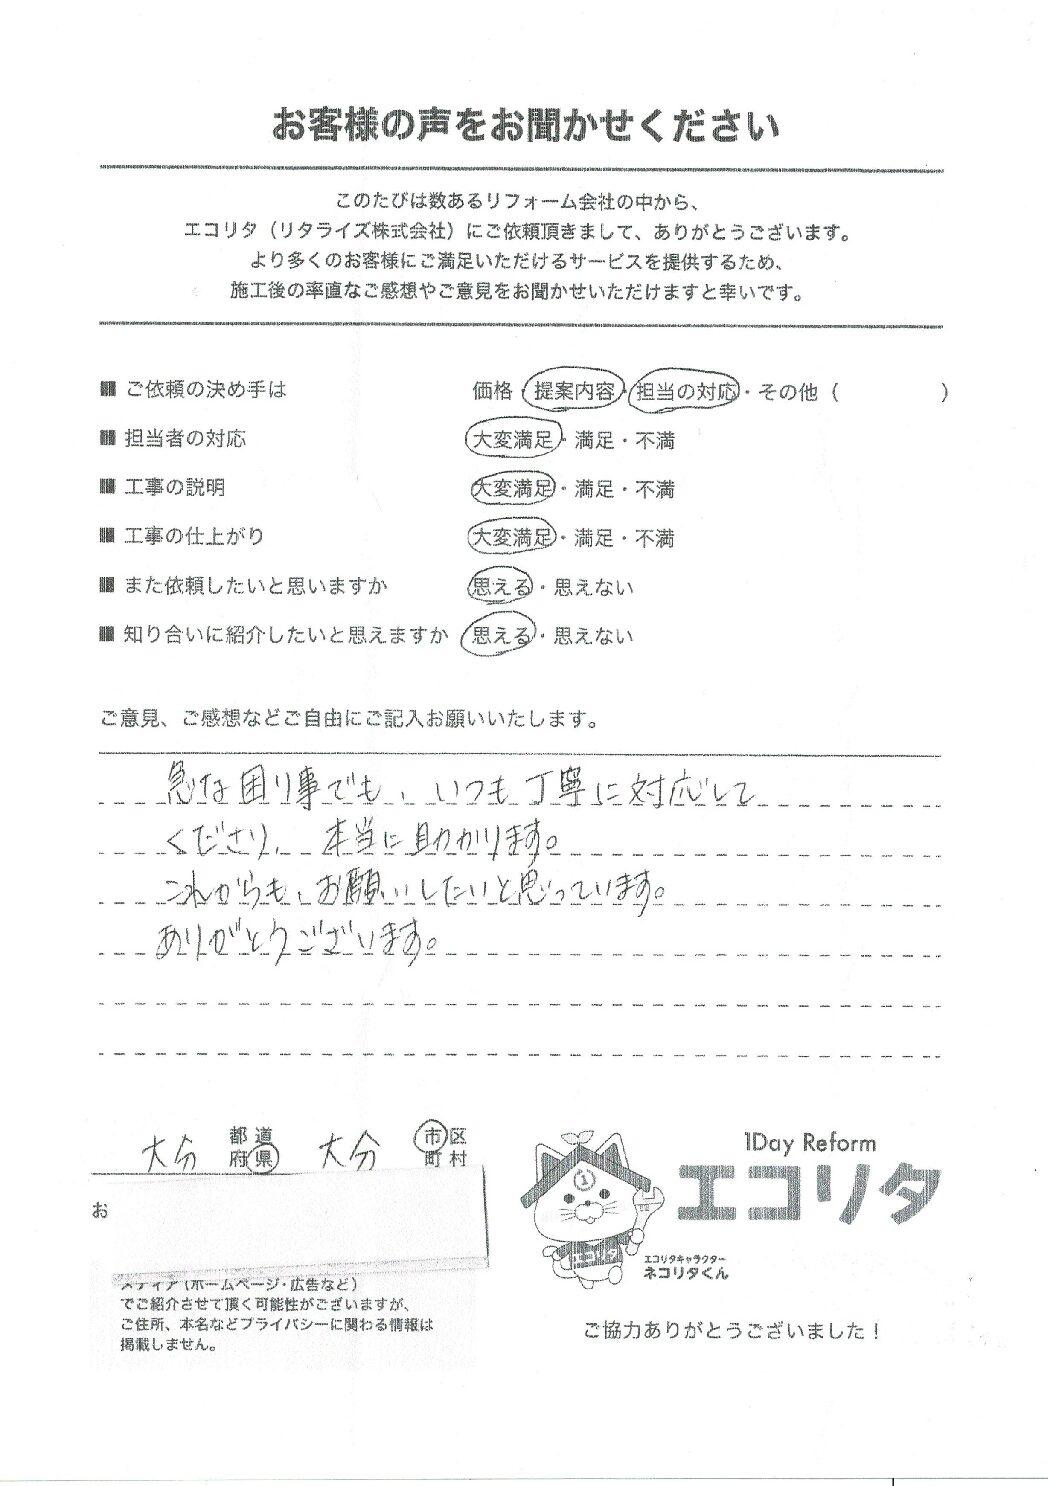 お客様の声をお聞かせください
このたびは数あるリフォーム会社の中から、
エコリタ（リタライズ株式会社）にご依頼頂きまして、ありがとうございます。
より多くのお客様にご満足いただけるサービスを提供するため、
施工後の率直なご感想やご意見をお聞かせいただけますと幸いです。
■ ご依頼の決め手は 価格・提案内容・担当の対応・その他（ ）
■ 担当者の対応 大変満足・満足・不満
■ 工事の説明 大変満足・満足・不満
■ 工事の仕上がり 大変満足・満足・不満
■ また依頼したいと思いますか 思える・思えない
■ 知り合いに紹介したいと思えますか 思える・思えない
ご意見、ご感想などご自由にご記入お願いいたします。
急な困り事でも、いつも丁寧に対応して
くださり、本当に助かります。
これからも、お願いしたいと思っています。
ありがとうございます。
大分 都道府県 大分 市区町村
お
メディア（ホームページ・広告など）
でご紹介させて頂く可能性がございますが、
ご住所、本名などプライバシーに関わる情報は
掲載しません。
1Day Reform
エコリタ
1
エコリタ
エコリタキャラクター
ネコリタくん
ご協力ありがとうございました！